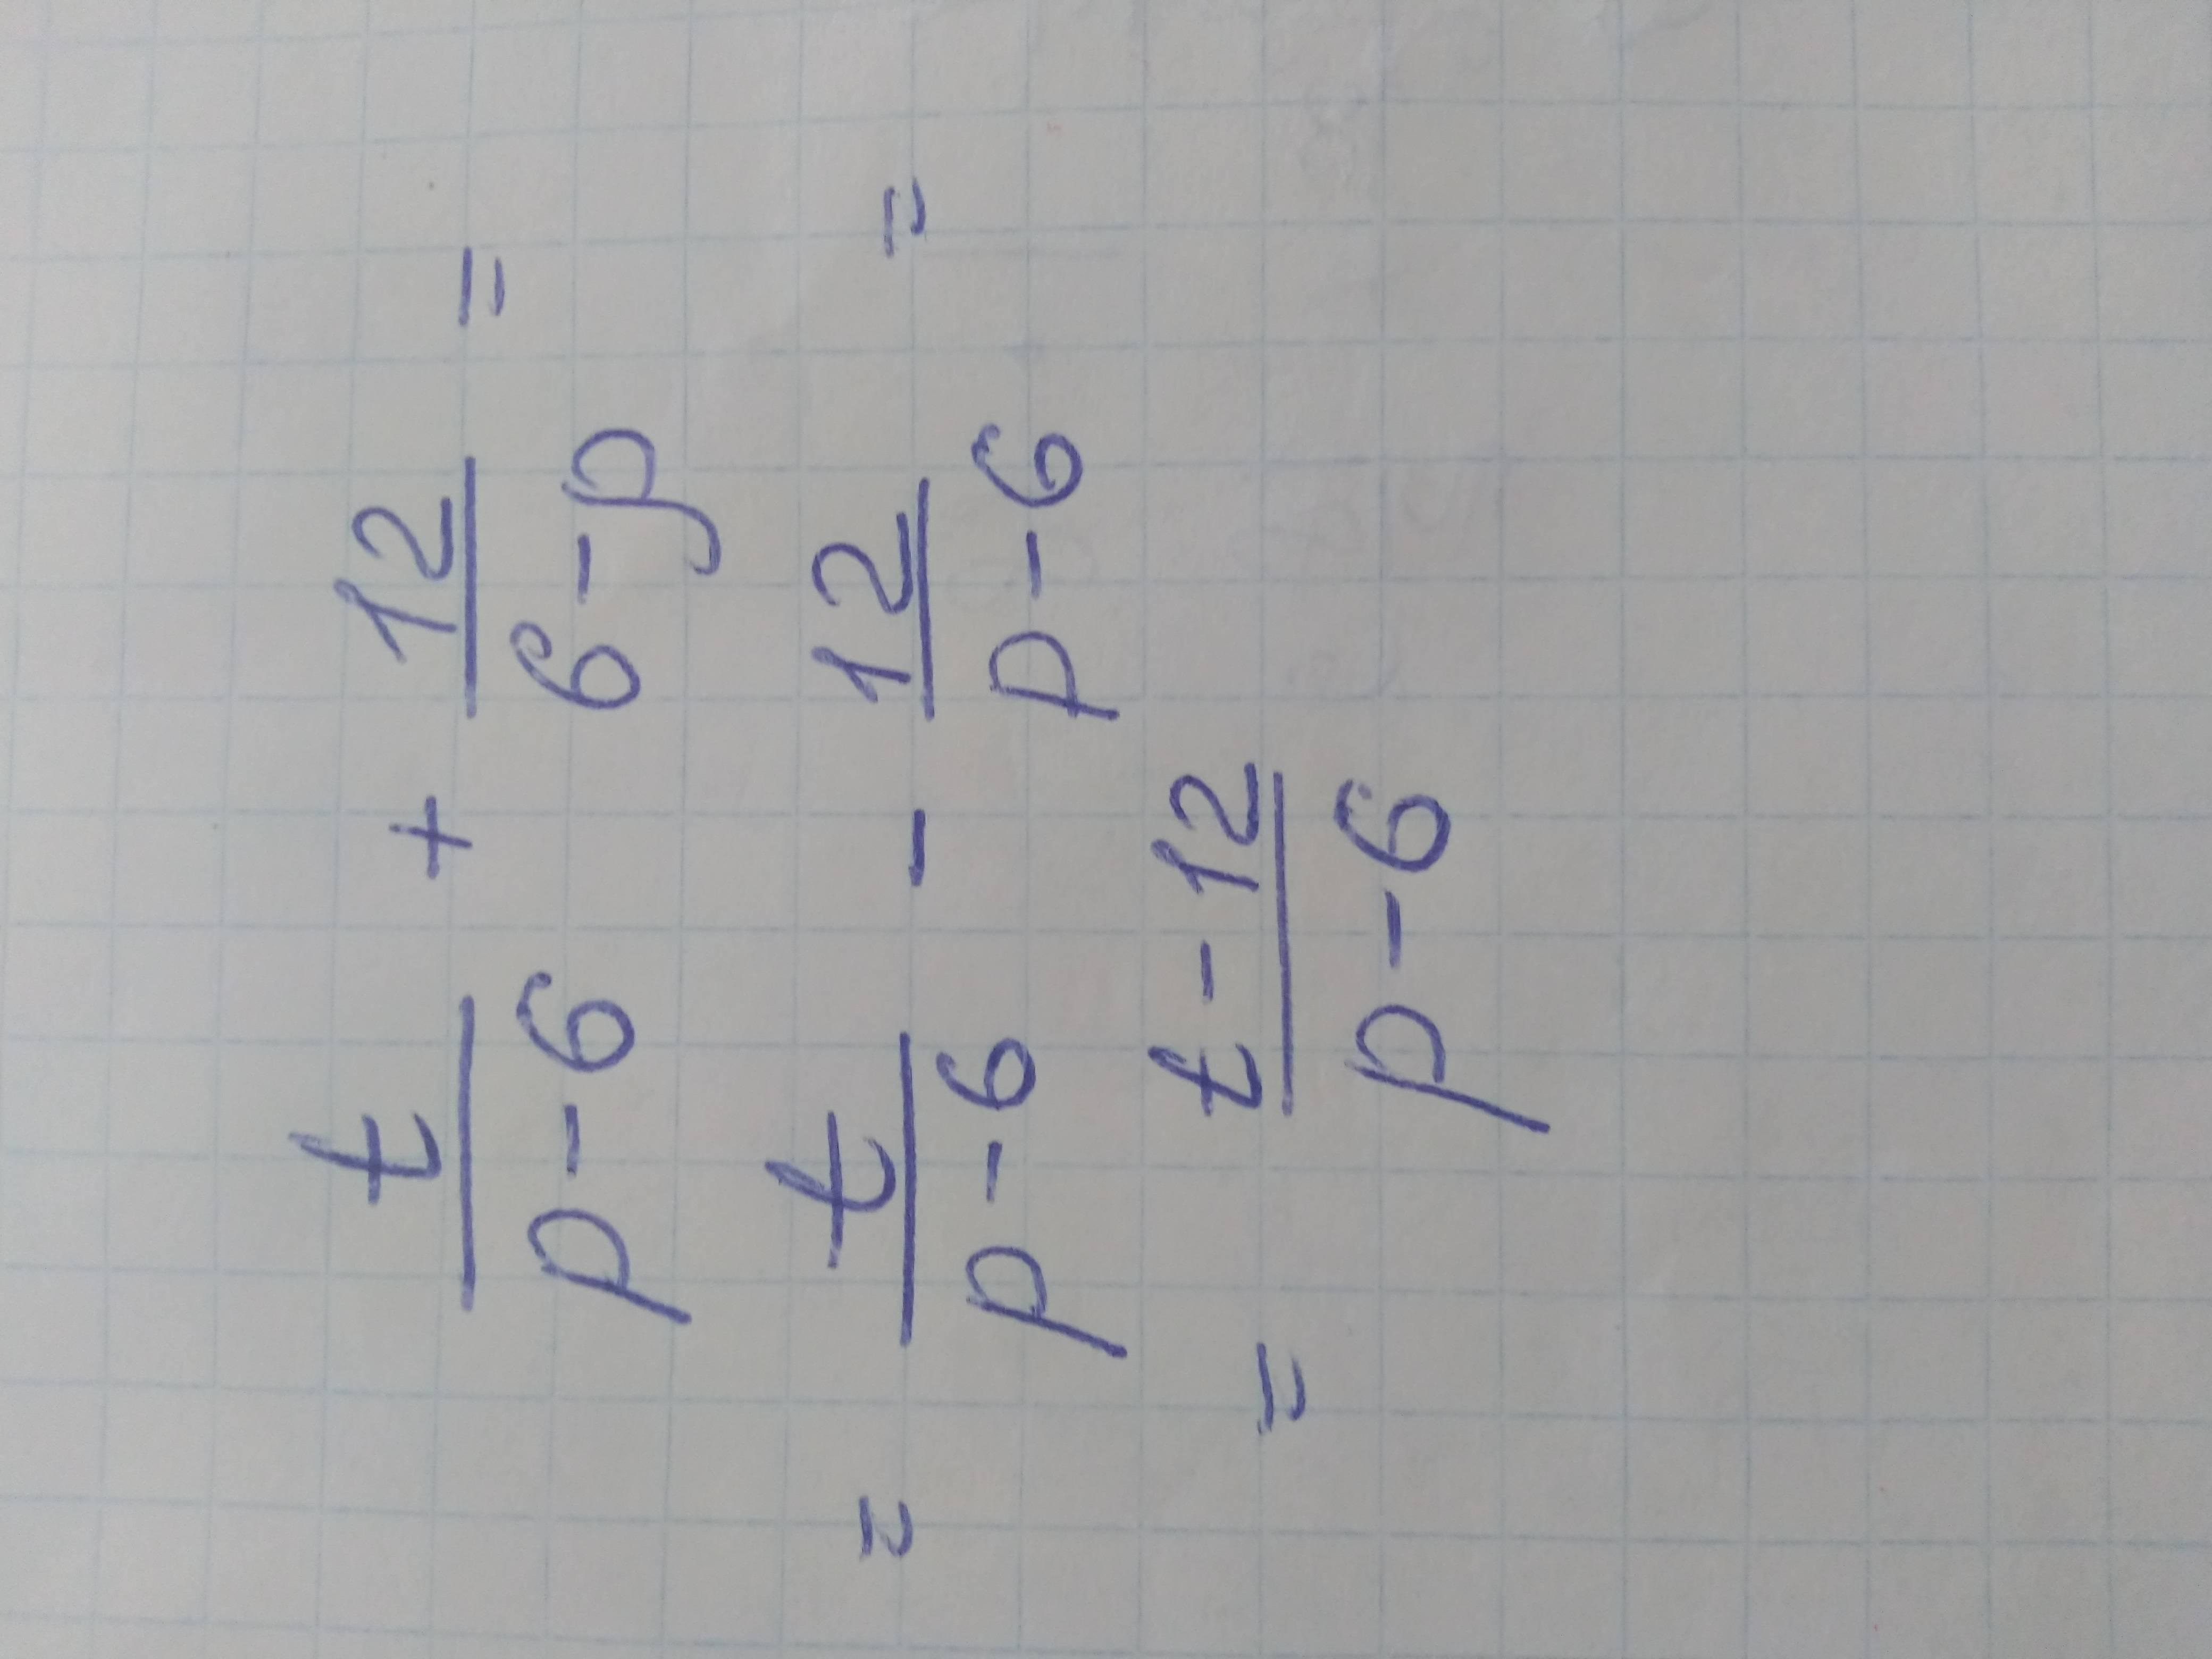 t/(p-6) + 12/(6-p) =
= t/(p-6) - 12/(p-6) =
= (t-12)/(p-6)